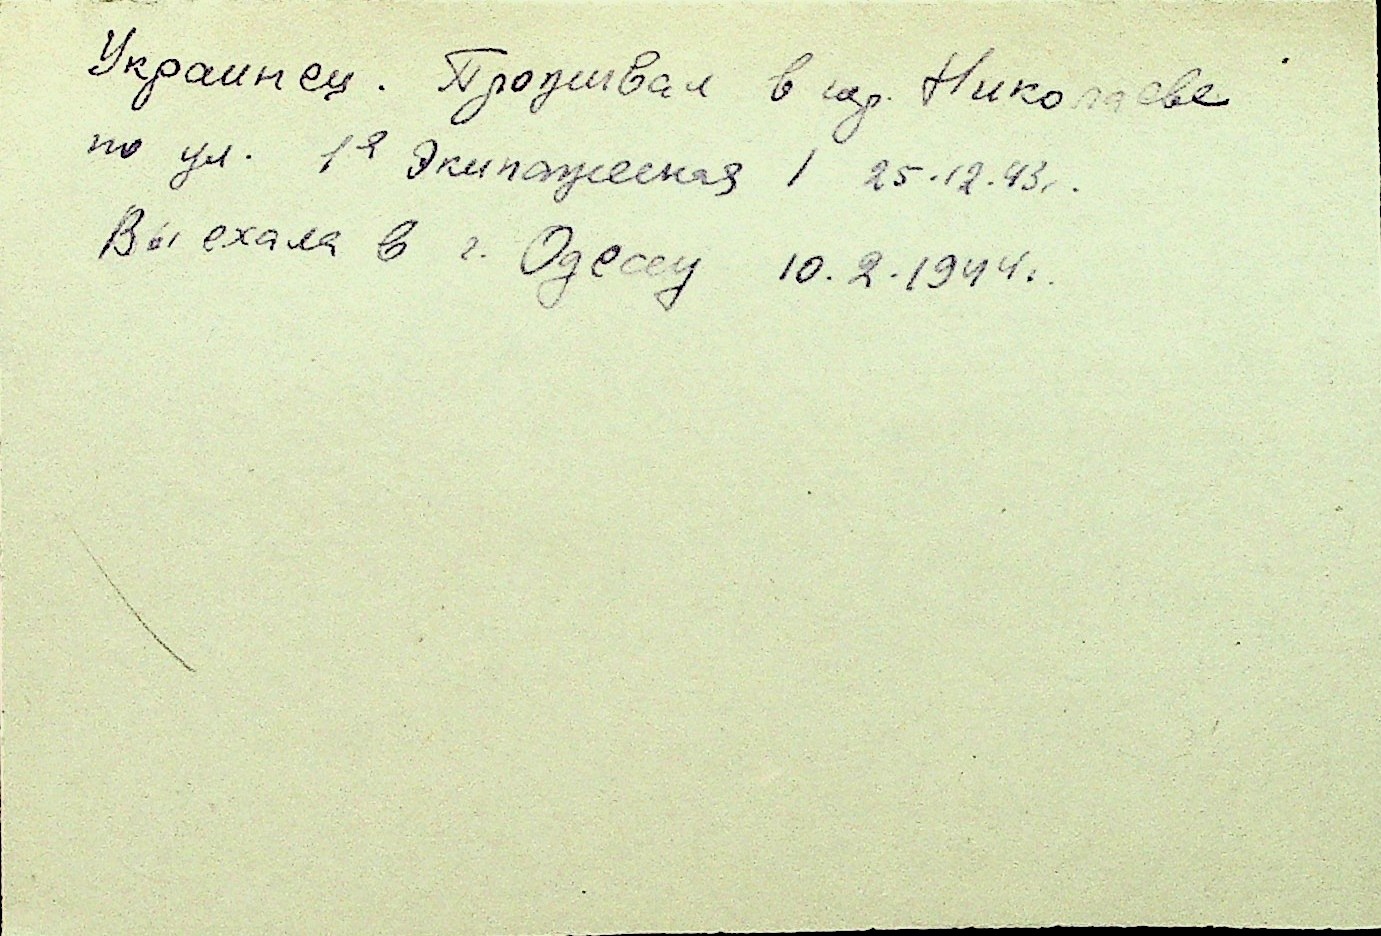 Украинец. Проживал в гор. Николаеве
по ул. 1я Экипажеская 1 25.12.43г.
Выехала в г. Одессу 10.2.1944г.